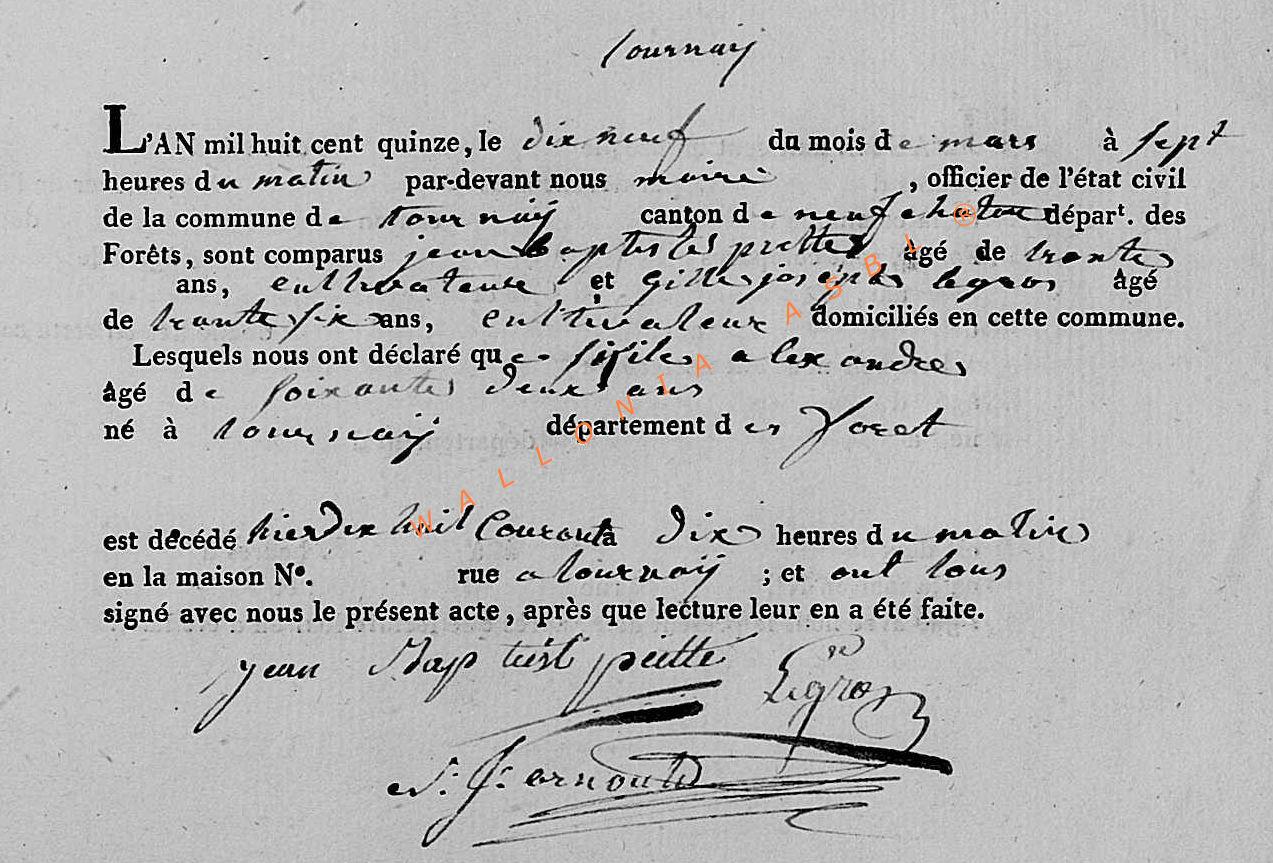 tournaij
L'AN mil huit cent quinze, le dix neuf du mois de mars à sept
heures du matin par-devant nous maire, officier de l'état civil
de la commune de tournaij canton de neufchatau départ. des
Forêts, sont comparus jean baptiste piette âgé de trante
ans, cultivateur et gille joseph legros âgé
de trante six ans, cultivateur domiciliés en cette commune.
Lesquels nous ont déclaré que alexandre
âgé de soixante deux ans
né à tournaij département des Foret
est décédé hier dix huit Courant à dix heures du matin
en la maison N°. rue a tournaij ; et ont tous
signé avec nous le présent acte, après que lecture leur en a été faite.
jean Baptist piette Legros
arnould
WALLONIA ASBL ®